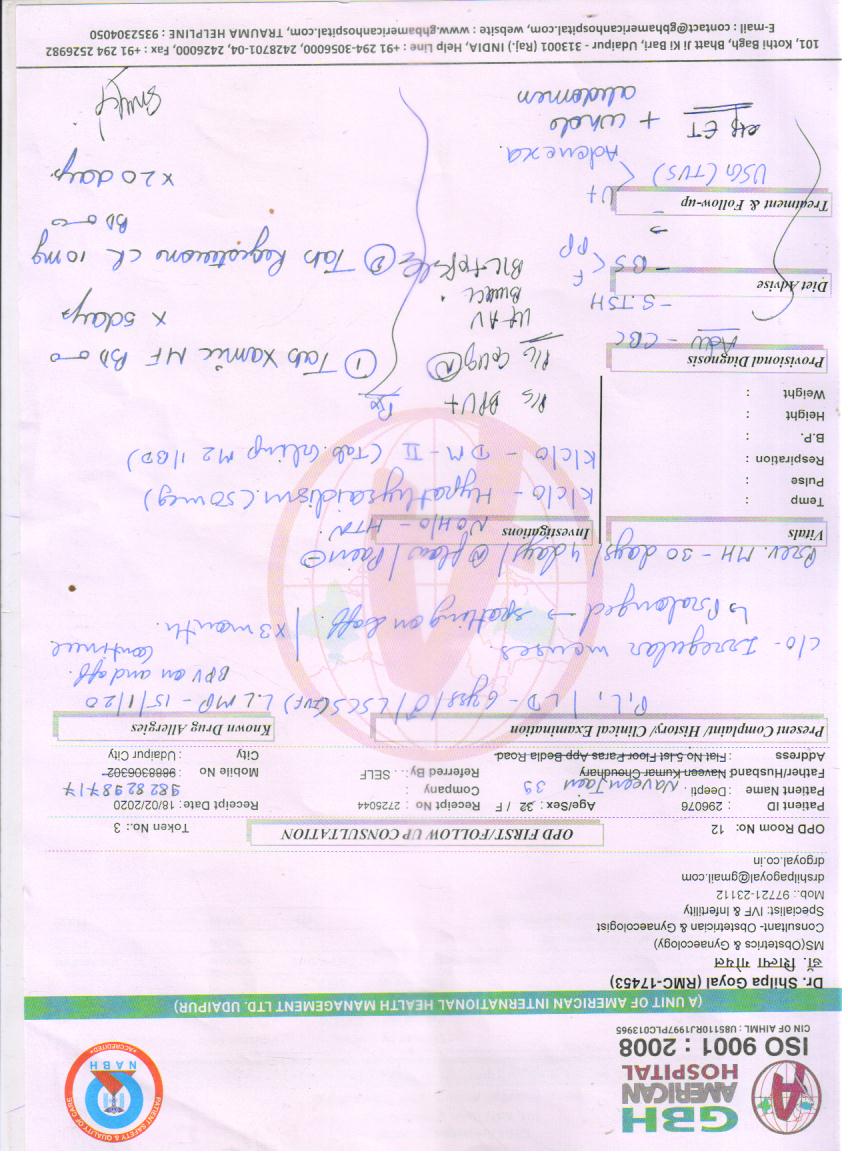 GBH
AMERICAN
HOSPITAL
ISO 9001 : 2008
CIN OF AIHML : U85110RJ1997PLC013965
PATIENT SAFETY & QUALITY OF CARE
NABH
•ACCREDITED•
(A UNIT OF AMERICAN INTERNATIONAL HEALTH MANAGEMENT LTD. UDAIPUR)
Dr. Shilpa Goyal (RMC-17453)
डॉ. शिल्पा गोयल
MS(Obstetrics & Gynaecology)
Consultant- Obstetrician & Gynaecologist
Specialist: IVF & Infertility
Mob.: 97721-23112
drshilpagoyal@gmail.com
drgoyal.co.in
OPD Room No: 12
OPD FIRST/FOLLOW UP CONSULTATION
Token No.: 3
Patient ID : 296076
Receipt No : 2725044
Receipt Date: 18/02/2020
Patient Name : Deepti . Naveen Jaen
Age/Sex : 32 / F 39
Company :
982 82 98717
Father/Husband Naveen Kumar Choudhary
Referred By... SELF
Mobile No : 9688306302
Address : Flat No 51 5t Floor Paras App Bedla Road
City : Udaipur City
Present Complaint/ History/ Clinical Examination
Known Drug Allergies
P1L1 / LD - 6yrs/♂/LSCS(IVF) L.L.MP - 15/1/20
BPV on and off.
c/o - Irregular menses
continue
↳ Prolonged → spotting on & off. / x3 month.
Prev. MH - 30 days / 4 days / Ⓝ flow / Pain ⊖
Vitals
Investigations
No H/o - HTN.
Temp :
K/c/o - Hypothyroidism. (50 mcg)
Pulse :
Respiration :
K/c/o - DM - II (Tab. Glimp M2 1/BD)
B.P. :
Height :
P/S BPV+
Rx
Weight :
Provisional Diagnosis
Adv - CBC
① Tab Xamic MF BD
x 5 days
- S.TSH
Ut AV
Diet Advise
- BS < F
PP
② Tab Regestrone CR 10mg
BD
x 20 days
Treatment & Follow-up
USG (TVS) < Ut
Adenexa
ET + whole
abdomen
101, Kothi Bagh, Bhatt Ji Ki Bari, Udaipur - 313001 (Raj.) INDIA, Help Line : +91 294-3056000, 2428701-04, 2426000, Fax : +91 294 2526982
E-mail : contact@gbhamericanhospital.com, website : www.gbhamericanhospital.com, TRAUMA HELPLINE : 9352304050